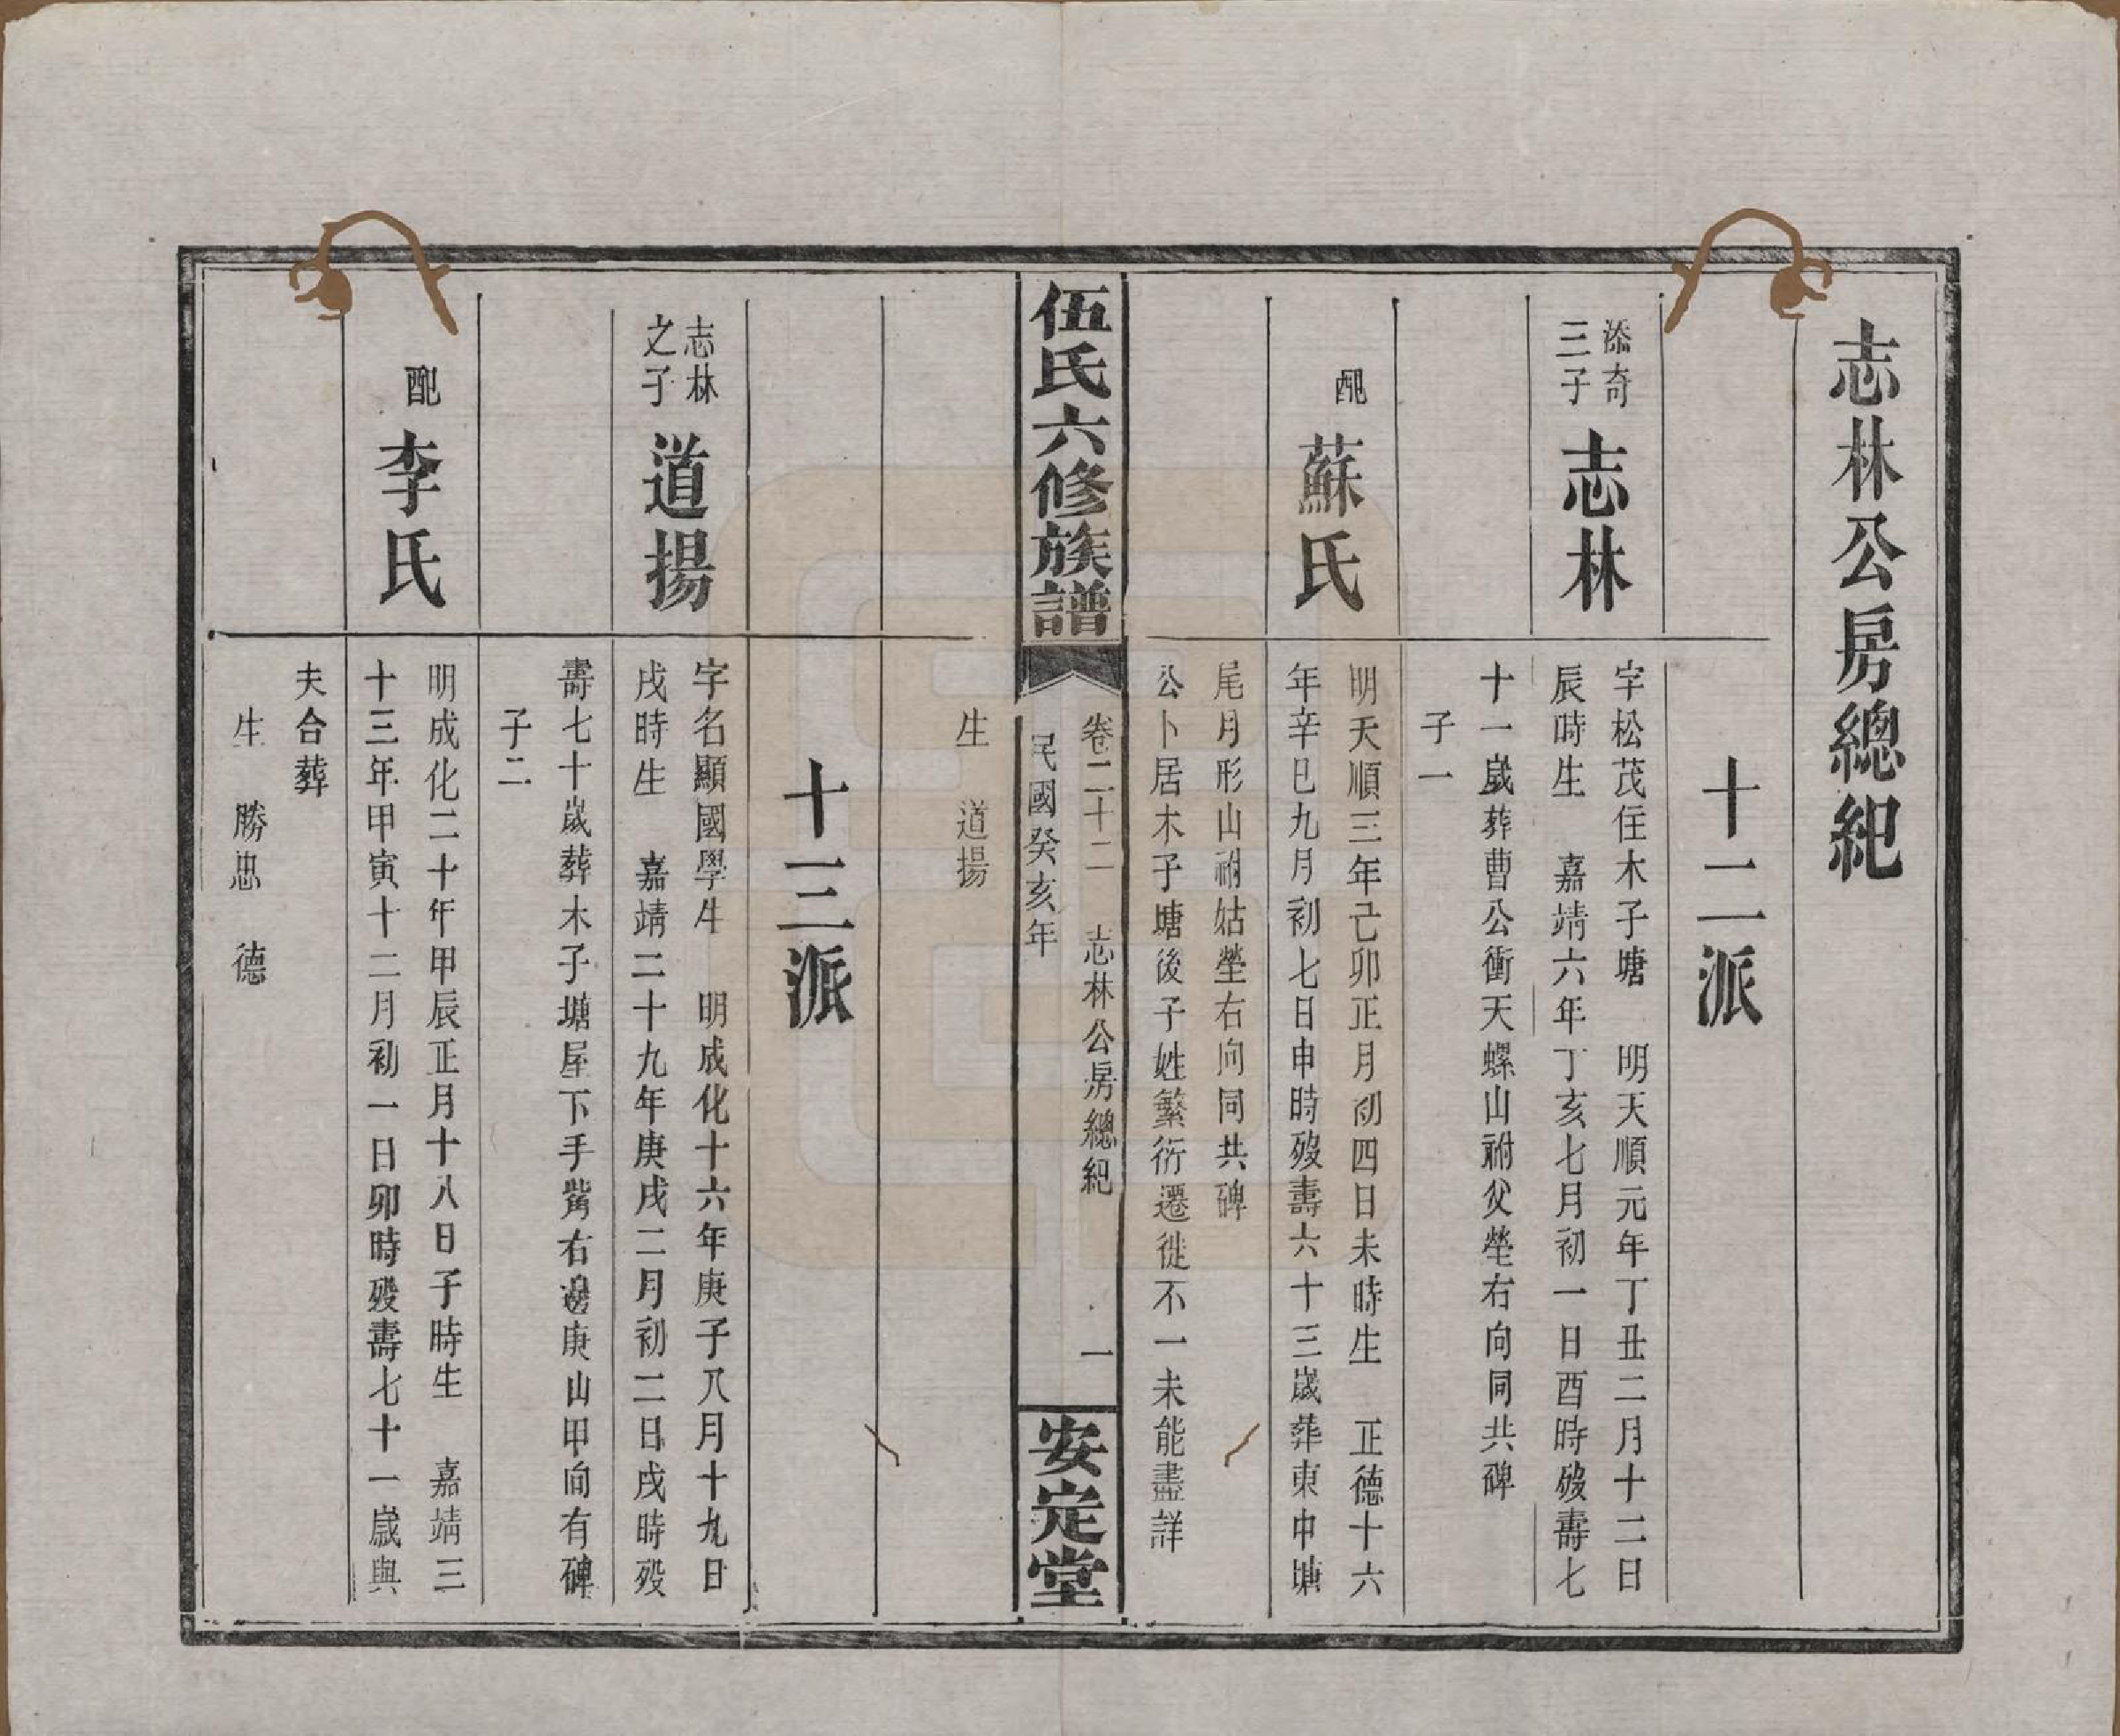 志林公房總紀
十二派
添奇三子
志林
字松茂住木子塘 明天順元年丁丑二月十二日
辰時生 嘉靖六年丁亥七月初一日酉時歿壽七
十一歲葬曹公衝天螺山祔父塋右向同共碑
子一
配
蘇氏
明天順三年己卯正月初四日未時生 正德十六
年辛巳九月初七日申時歿壽六十三歲葬東中塘
尾月形山祔姑塋右向同共碑
公卜居木子塘後子姓繁衍遷徙不一未能盡詳
伍氏六修族譜
卷二十二 志林公房總紀 一
民國癸亥年
安定堂
生 道揚
十三派
志林之子
道揚
字名顯國學生 明成化十六年庚子八月十九日
戌時生 嘉靖二十九年庚戌二月初二日戌時歿
壽七十歲葬木子塘屋下手嘴右邊庚山甲向有碑
子二
配
李氏
明成化二十年甲辰正月十八日子時生 嘉靖三
十三年甲寅十二月初一日卯時歿壽七十一歲與
夫合葬
生 勝忠 德